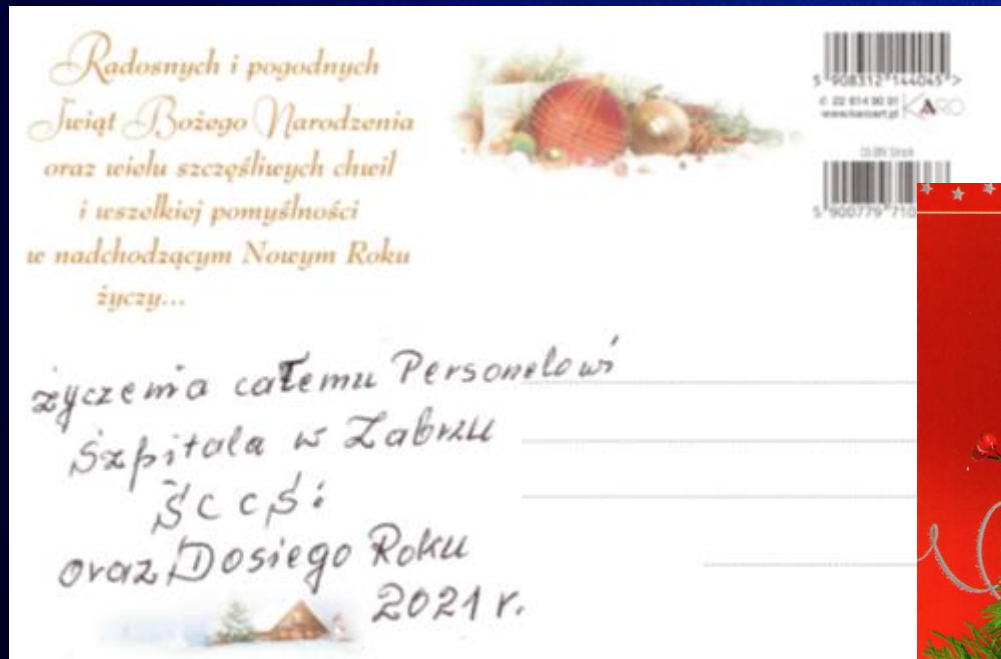 Radosnych i pogodnych
Świąt Bożego Narodzenia
oraz wielu szczęśliwych chwil
i wszelkiej pomyślności
w nadchodzącym Nowym Roku
życzy...
5 908312 144045 >
www.karoart.pl KARO
5 900779 710
życzenia całemu Personelowi
Szpitala w Zabrzu
ŚCCS:
oraz Dosiego Roku
2021 r.